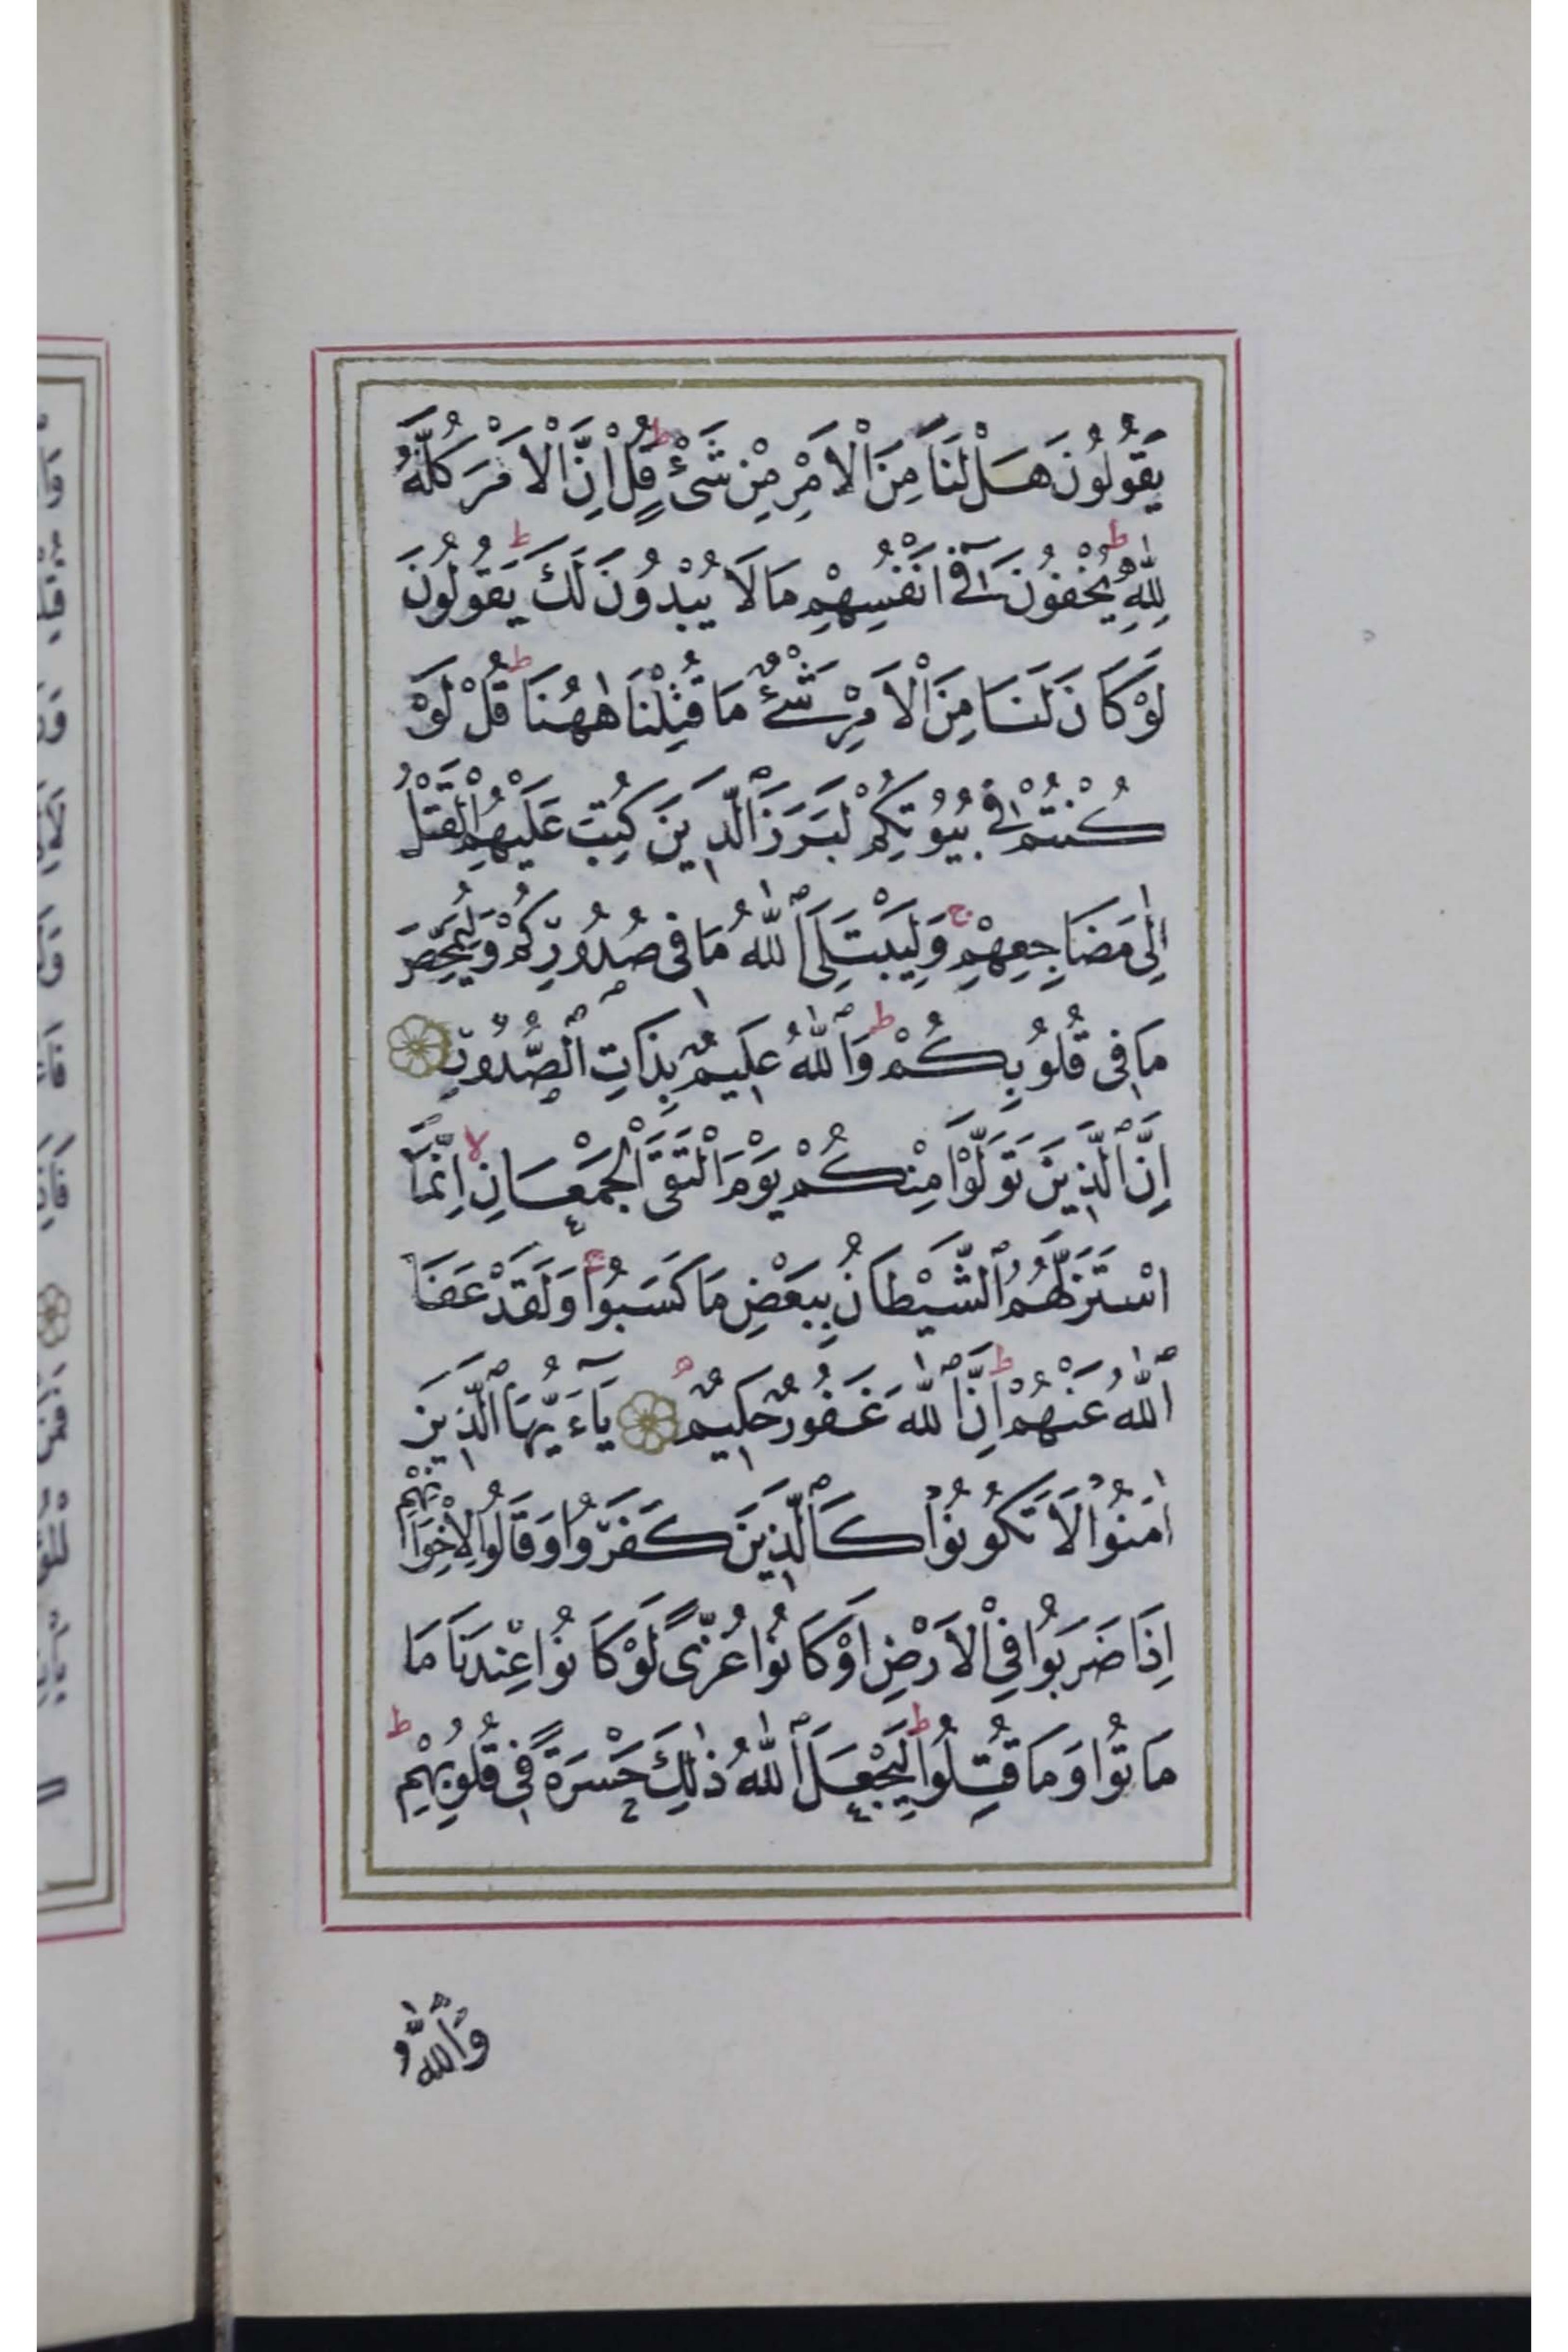 يَقُولُونَ هَلْ لَنَا مِنَ الْاَمْرِ مِنْ شَیْءٍ ط قُلْ اِنَّ الْاَمْرَ كُلَّهُ
لِلّٰهِ ط يُخْفُونَ فِٓى اَنْفُسِهِمْ مَا لَا يُبْدُونَ لَكَ ط يَقُولُونَ
لَوْ كَانَ لَنَا مِنَ الْاَمْرِ شَیْءٌ مَا قُتِلْنَا هٰهُنَا ط قُلْ لَوْ
كُنْتُمْ فِى بُيُوتِكُمْ لَبَرَزَ الَّذِينَ كُتِبَ عَلَيْهِمُ الْقَتْلُ
اِلٰى مَضَاجِعِهِمْ ج وَلِيَبْتَلِىَ اللّٰهُ مَا فِى صُدُورِكُمْ وَلِيُمَحِّصَ
مَا فِى قُلُوبِكُمْ ط وَاللّٰهُ عَلِيمٌ بِذَاتِ الصُّدُورِ
اِنَّ الَّذِينَ تَوَلَّوْا مِنْكُمْ يَوْمَ الْتَقَى الْجَمْعَانِ لا اِنَّمَا
اسْتَزَلَّهُمُ الشَّيْطَانُ بِبَعْضِ مَا كَسَبُوا ج وَلَقَدْ عَفَا
اللّٰهُ عَنْهُمْ ط اِنَّ اللّٰهَ غَفُورٌ حَلِيمٌ يَٓاءَيُّهَا الَّذِينَ
اٰمَنُوا لَا تَكُونُوا كَالَّذِينَ كَفَرُوا وَقَالُوا لِاِخْوَانِهِمْ
اِذَا ضَرَبُوا فِى الْاَرْضِ اَوْ كَانُوا غُزًّى لَوْ كَانُوا عِنْدَنَا مَا
مَاتُوا وَمَا قُتِلُوا ط لِيَجْعَلَ اللّٰهُ ذٰلِكَ حَسْرَةً فِى قُلُوبِهِمْ ط
وَاللّٰهُ